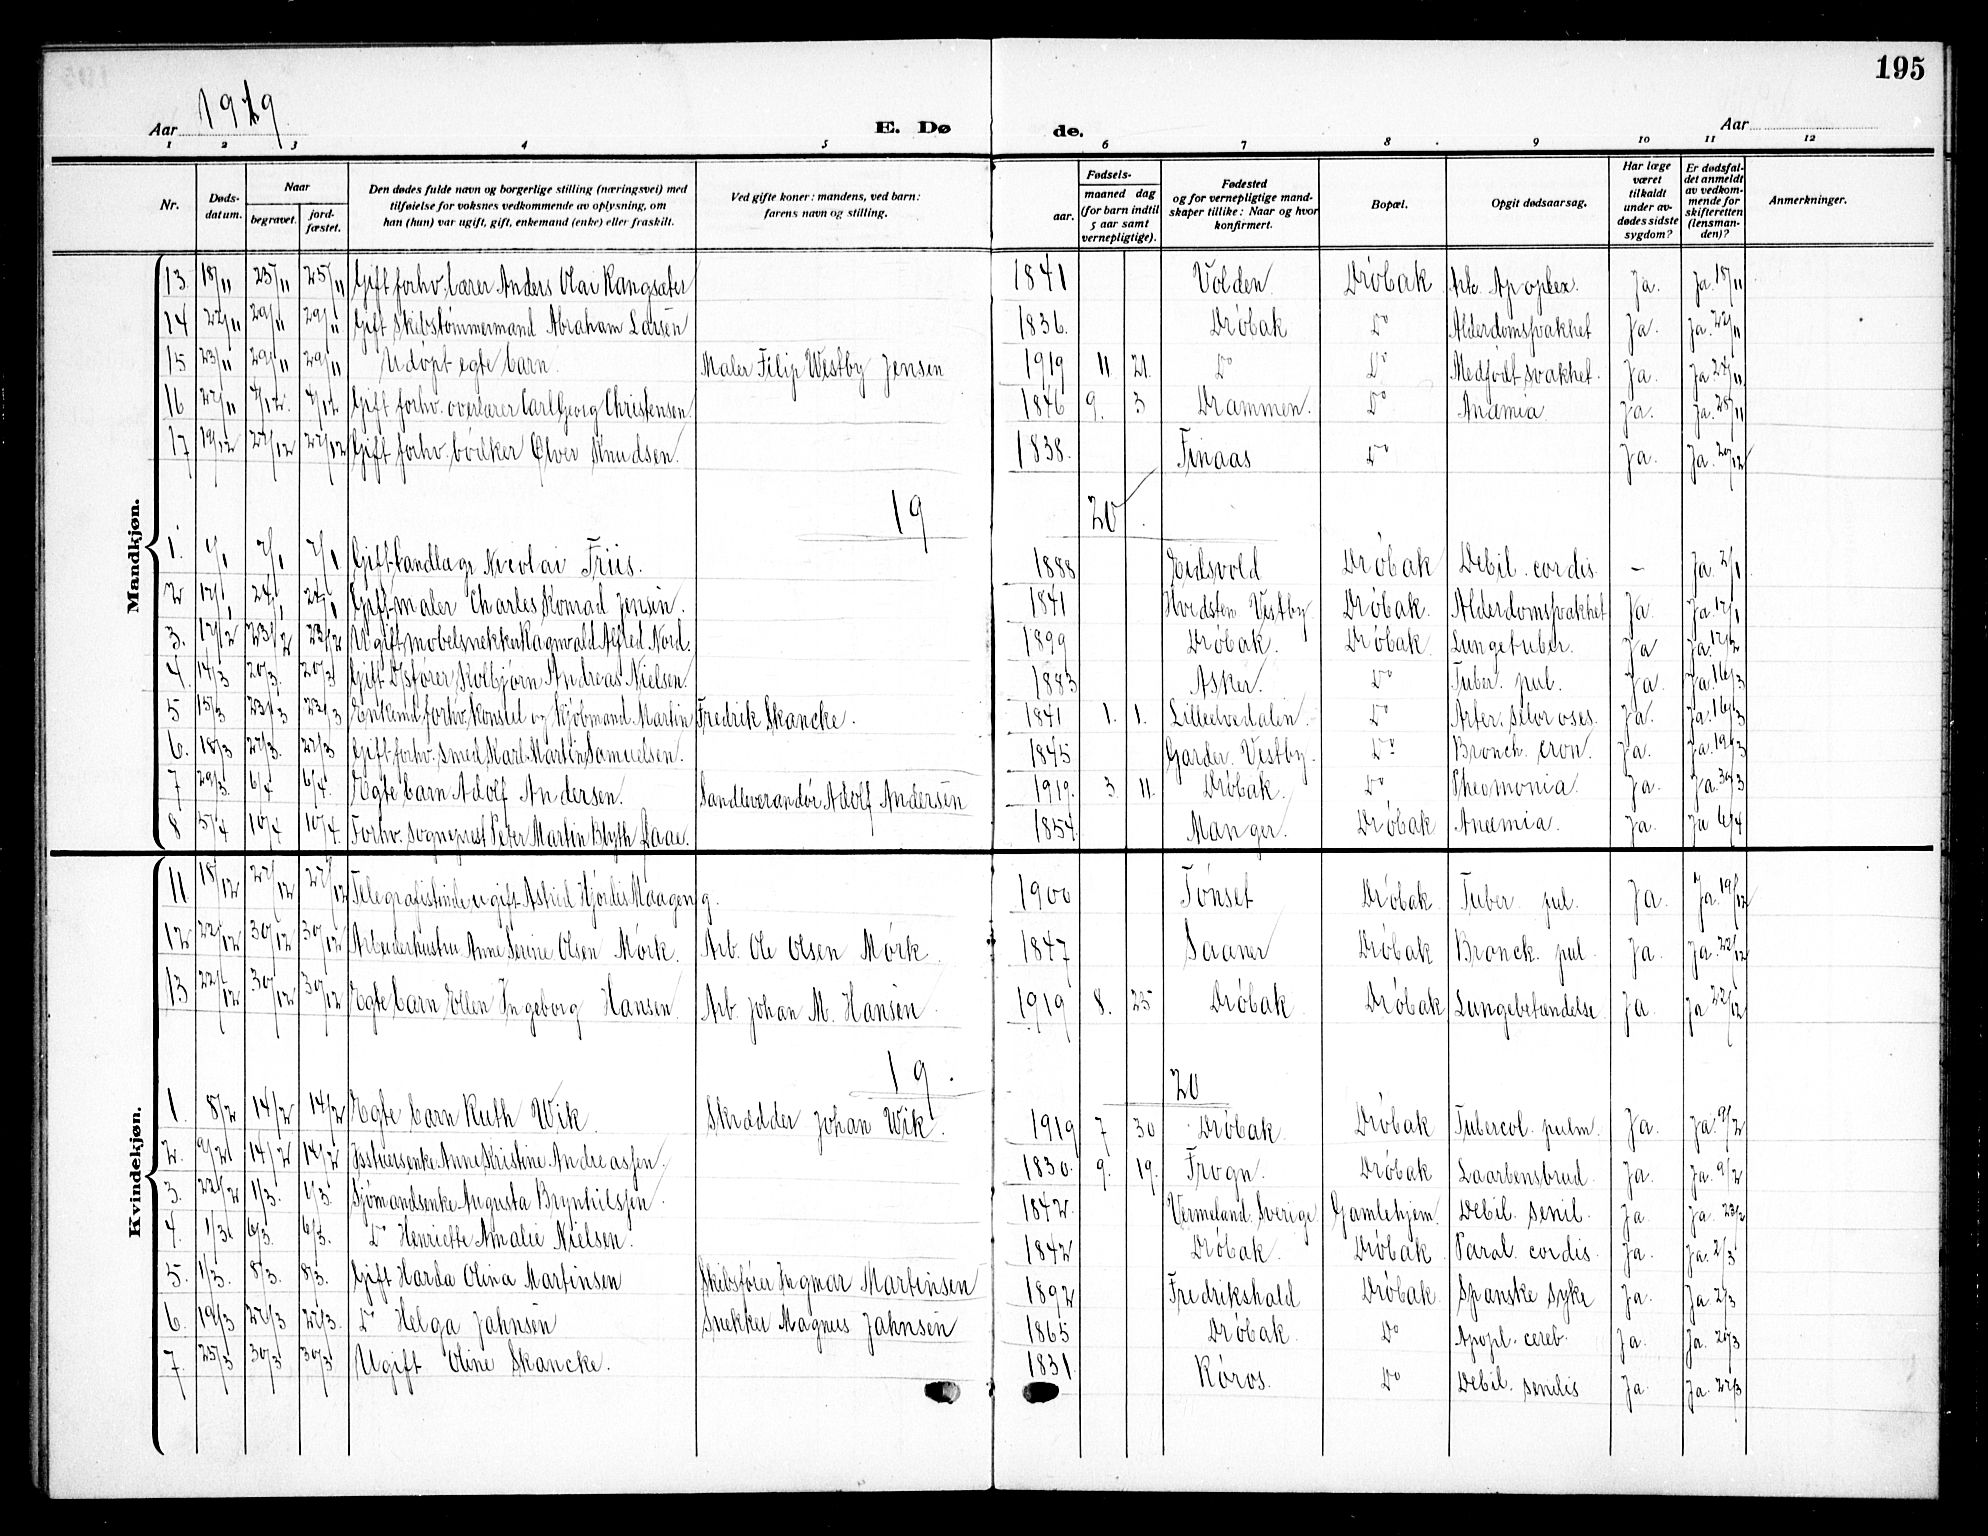 195
Aar 1919 E. Døde. Aar
1 2 3 4 5 6 7 8 9 10 11 12
Nr. Dødsdatum. Naar begravet. jordfæstet. Den dødes fulde navn og borgerlige stilling (næringsvei) med tilføielse for voksnes vedkommende av oplysning, om han (hun) var ugift, gift, enkemand (enke) eller fraskilt. Ved gifte koner: mandens, ved barn: farens navn og stilling. Fødsels- aar. maaned dag (for barn indtil 5 aar samt vernepligtige). Fødested og for vernepligtige mandskaper tillike: Naar og hvor konfirmert. Bopæl. Opgit dødsaarsag. Har læge været tilkaldt under avdødes sidste sygdom? Er dødsfaldet anmeldt av vedkommende for skifteretten (lensmanden)? Anmerkninger.
Mandkjøn.
13 18/11 25/11 25/11 Gift forhv. lærer Anders Olai Rangsæter 1841 Volden Drøbak Apoplex. Ja. Ja. 18/11
14 22/11 29/11 29/11 Gift Skibstømmermand Abraham Larsen 1836. Drøbak Do Alderdomsvakhet Ja. Ja. 22/11
15 23/11 29/11 29/11 Udøpt egte barn. Maler Filip Westby Jensen 1919 11 21. Do Do Medfødt svakhet. Ja. Ja 24/11
16 27/11 4/12. 4/12 Gift forhv. overlærer Carl Georg Christensen. 1846 9. 3 Drammen. Do Anæmia Ja. Ja. 28/11
17 19/12 27/12 27/12 Gift forhv. bødker Olver Knudsen. 1838. Finaas Do Ja. Ja. 20/12
19 20
1. 2/1 7/1 7/1 Gift tandlæge Nicolai Friis. 1888 Eidsvold Drøbak Debil. cordis – Ja. 2/1
2 17/1 24/1 24/1 Gift maler Charles Konrad Jensen. 1841 Hvidsten Vestby Drøbak. Alderdomsvakhet Ja. Ja. 17/1
3. 17/2 23/2 23/2 Ugift møbelsnekker Ragnvald Alfled Nord. 1899 Drøbak. Drøbak Lungetuber. Ja Ja. 17/2
4. 14/3 20/3. 20/3 Gift Kolbjørn Andreas Nielsen. 1883 Asker. Do Tuber. pul. Ja. Ja. 16/3
5 15/3 23/3 23/3 Enkemd. forhv. konsul og kjøbmand Martin Fredrik Skancke. 1841 1. 1. Lilleelvedalen. Do Arter. scloroses. Ja. Ja. 16/3
6. 18/3 27/3. 27/3 Gift forhv. smed Karl Martin Samuelsen. 1845 Garder. Vestby. Do Bronch. cron. Ja. Ja. 19/3
7 29/3. 6/4 6/4. Egte barn Adolf Andersen. Sandleverandør Adolf Andersen 1919. 3. 11. Drøbak. Do Pneomonia. Ja. Ja. 30/3
8 5/4 10/4 10/4. Forhv. Sogneprest Peter Martin Blyth Daae. 1854. Manger. Drøbak Anæmia. Ja. Ja 6/4
Kvindekjøn.
11 18/12 27/12 27/12 Telegrafistinde ugift Astrid Hjørdis Maageng. 1900 Tønset Drøbak Tuber. pul. Ja. Ja. 19/12
12 22/12 30/12 30/12 Arbeiderhustru Anne Serine Olsen Mørk. Arb. Ole Olsen Mørk. 1847 Saaner Drøbak Bronck. pul. Ja. Ja. 22/12
13 22/12 30/12 30/12 Egte barn Ellen Ingeborg Hansen. Arb. Johan M. Hansen 1919 8. 25 Drøbak. Drøbak Lungebetændelse. Ja Ja 22/12
19. 20
1. 8/2 14/2 14/2 Egte barn Ruth Wik. Skrædder Johan Wik. 1919 7 30 Drøbak. Drøbak Tubercol. pulm. Ja. Ja. 9/2
2. 9/2 14/2 14/2 Anne Kristine Andreassen. 1830. 9. 19. Frogn. Drøbak Laarbensbrud. Ja. Ja. 9/2
3. 22/2 1/3. 1/3. Sjømandsenke Augusta Brynhilssen. 1842. Vermeland. Sverige Gamlehjem. Debil. senil. Ja. Ja. 23/2
4. 1/3 6/3. 6/3. Do Henriette Amalie Nielsen. 1842 Drøbak. Drøbak Paral. cordis. Ja. Ja. 2/3
5. 1/3. 8/3. 8/3. Gift Harda Olina Martinsen Skibsfører Ingmar Martinsen 1892 Fredrikshald Drøbak. Spanske syke Ja. Ja 2/3
6. 19/3 27/3 27/3. Do Helga Jahnsen Snekker Magnus Jahnsen 1865 Drøbak. Do Apopl. cereb. Ja. Ja. 20/3
7. 25/3 30/3 30/3 Ugift Oline Skancke. 1831. Røros. Do Debil. senilis Ja. Ja. 27/3